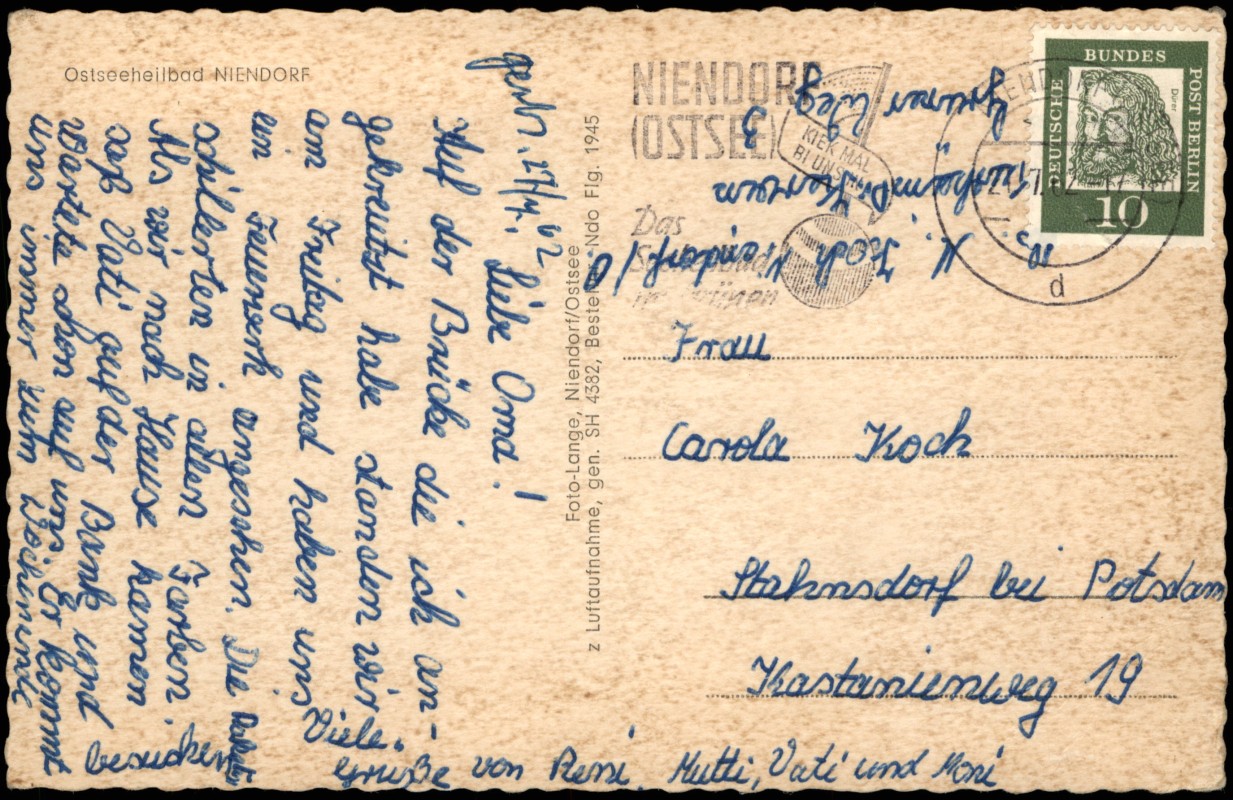 Ostseeheilbad NIENDORF
gesch. 27/7. 62
Liebe Oma!
Auf der Brücke die ich an-
gekreuzt habe standen wir
am Freitag und haben uns
ein Feuerwerk angesehen. Die Raketen
schillerten in allen Farben.
Als wir nach Hause kamen
saß Vati auf der Bank und
wartete schon auf uns. Er kommt
uns immer zum Wochenende
besuchen
Viele
Grüße von Reni, Mutti, Vati und Moni
Foto-Lange, Niendorf/Ostsee
z Luftaufnahme, gen. SH 4382, Bestell-Ndo Flg. 1945
NIENDORF
(OSTSEE)
KIEK MAL
BI UNS IN
Das
im Grünen
NIENDORF
62-17
d
DEUTSCHE
BUNDES
POST BERLIN
Dürer
10
K. Koch Niendorf/O
Kurheim
Grüner Weg 3
Frau
Carola Koch
Stahnsdorf bei Potsdam
Kastanienweg 19